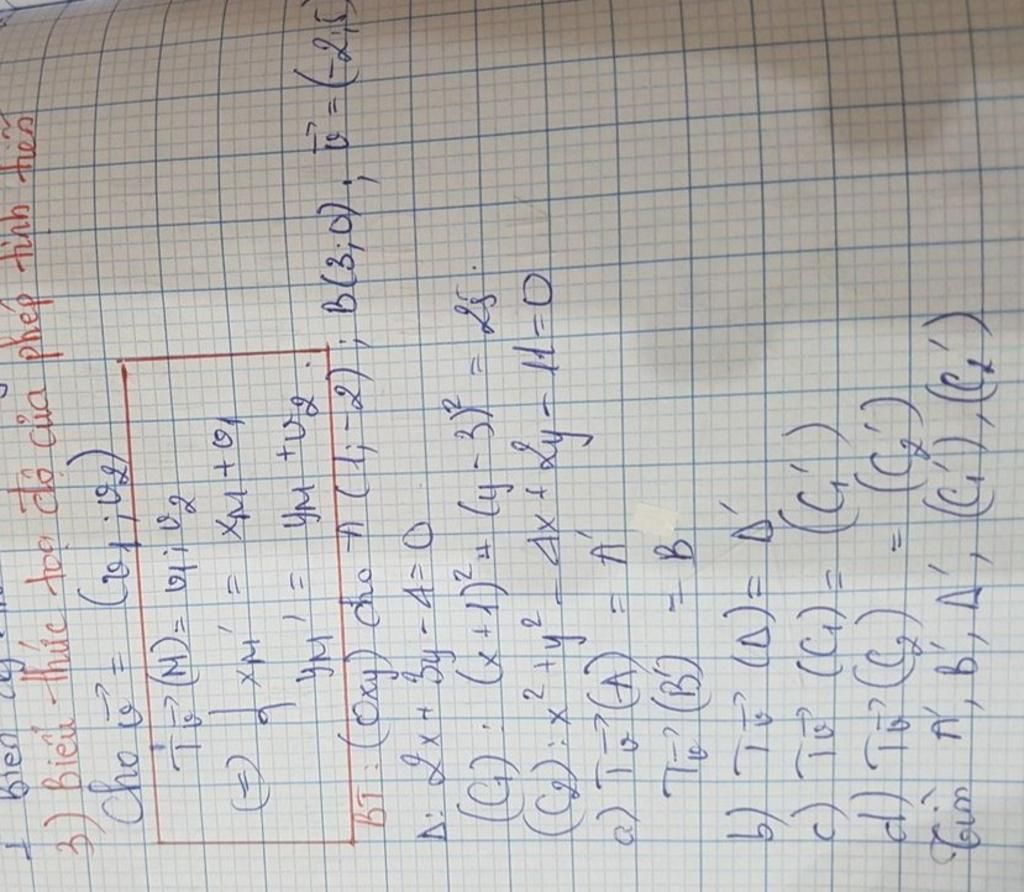 3) Biểu thức toạ độ của phép tịnh tiến
Cho v⃗ = (v1 ; v2)
Tv⃗ (M) = v1 ; v2
(=) { xM' = xM + v1
yM' = yM + v2 .
BT : (Oxy) cho A (1 ; -2) ; B(3 ; 0) , v⃗ = (-2 ; 5)
Δ: 2x + 3y - 4 = 0
(C1) : (x + 1)² + (y - 3)² = 25.
(C2) : x² + y² - 4x + 2y - 11 = 0
a) Tv⃗ (A) = A'
Tv⃗ (B') = B
b) Tv⃗ (Δ) = Δ'
c) Tv⃗ (C1) = (C1')
d) Tv⃗ (C2) = (C2')
Tìm A', B', Δ', (C1'), (C2')